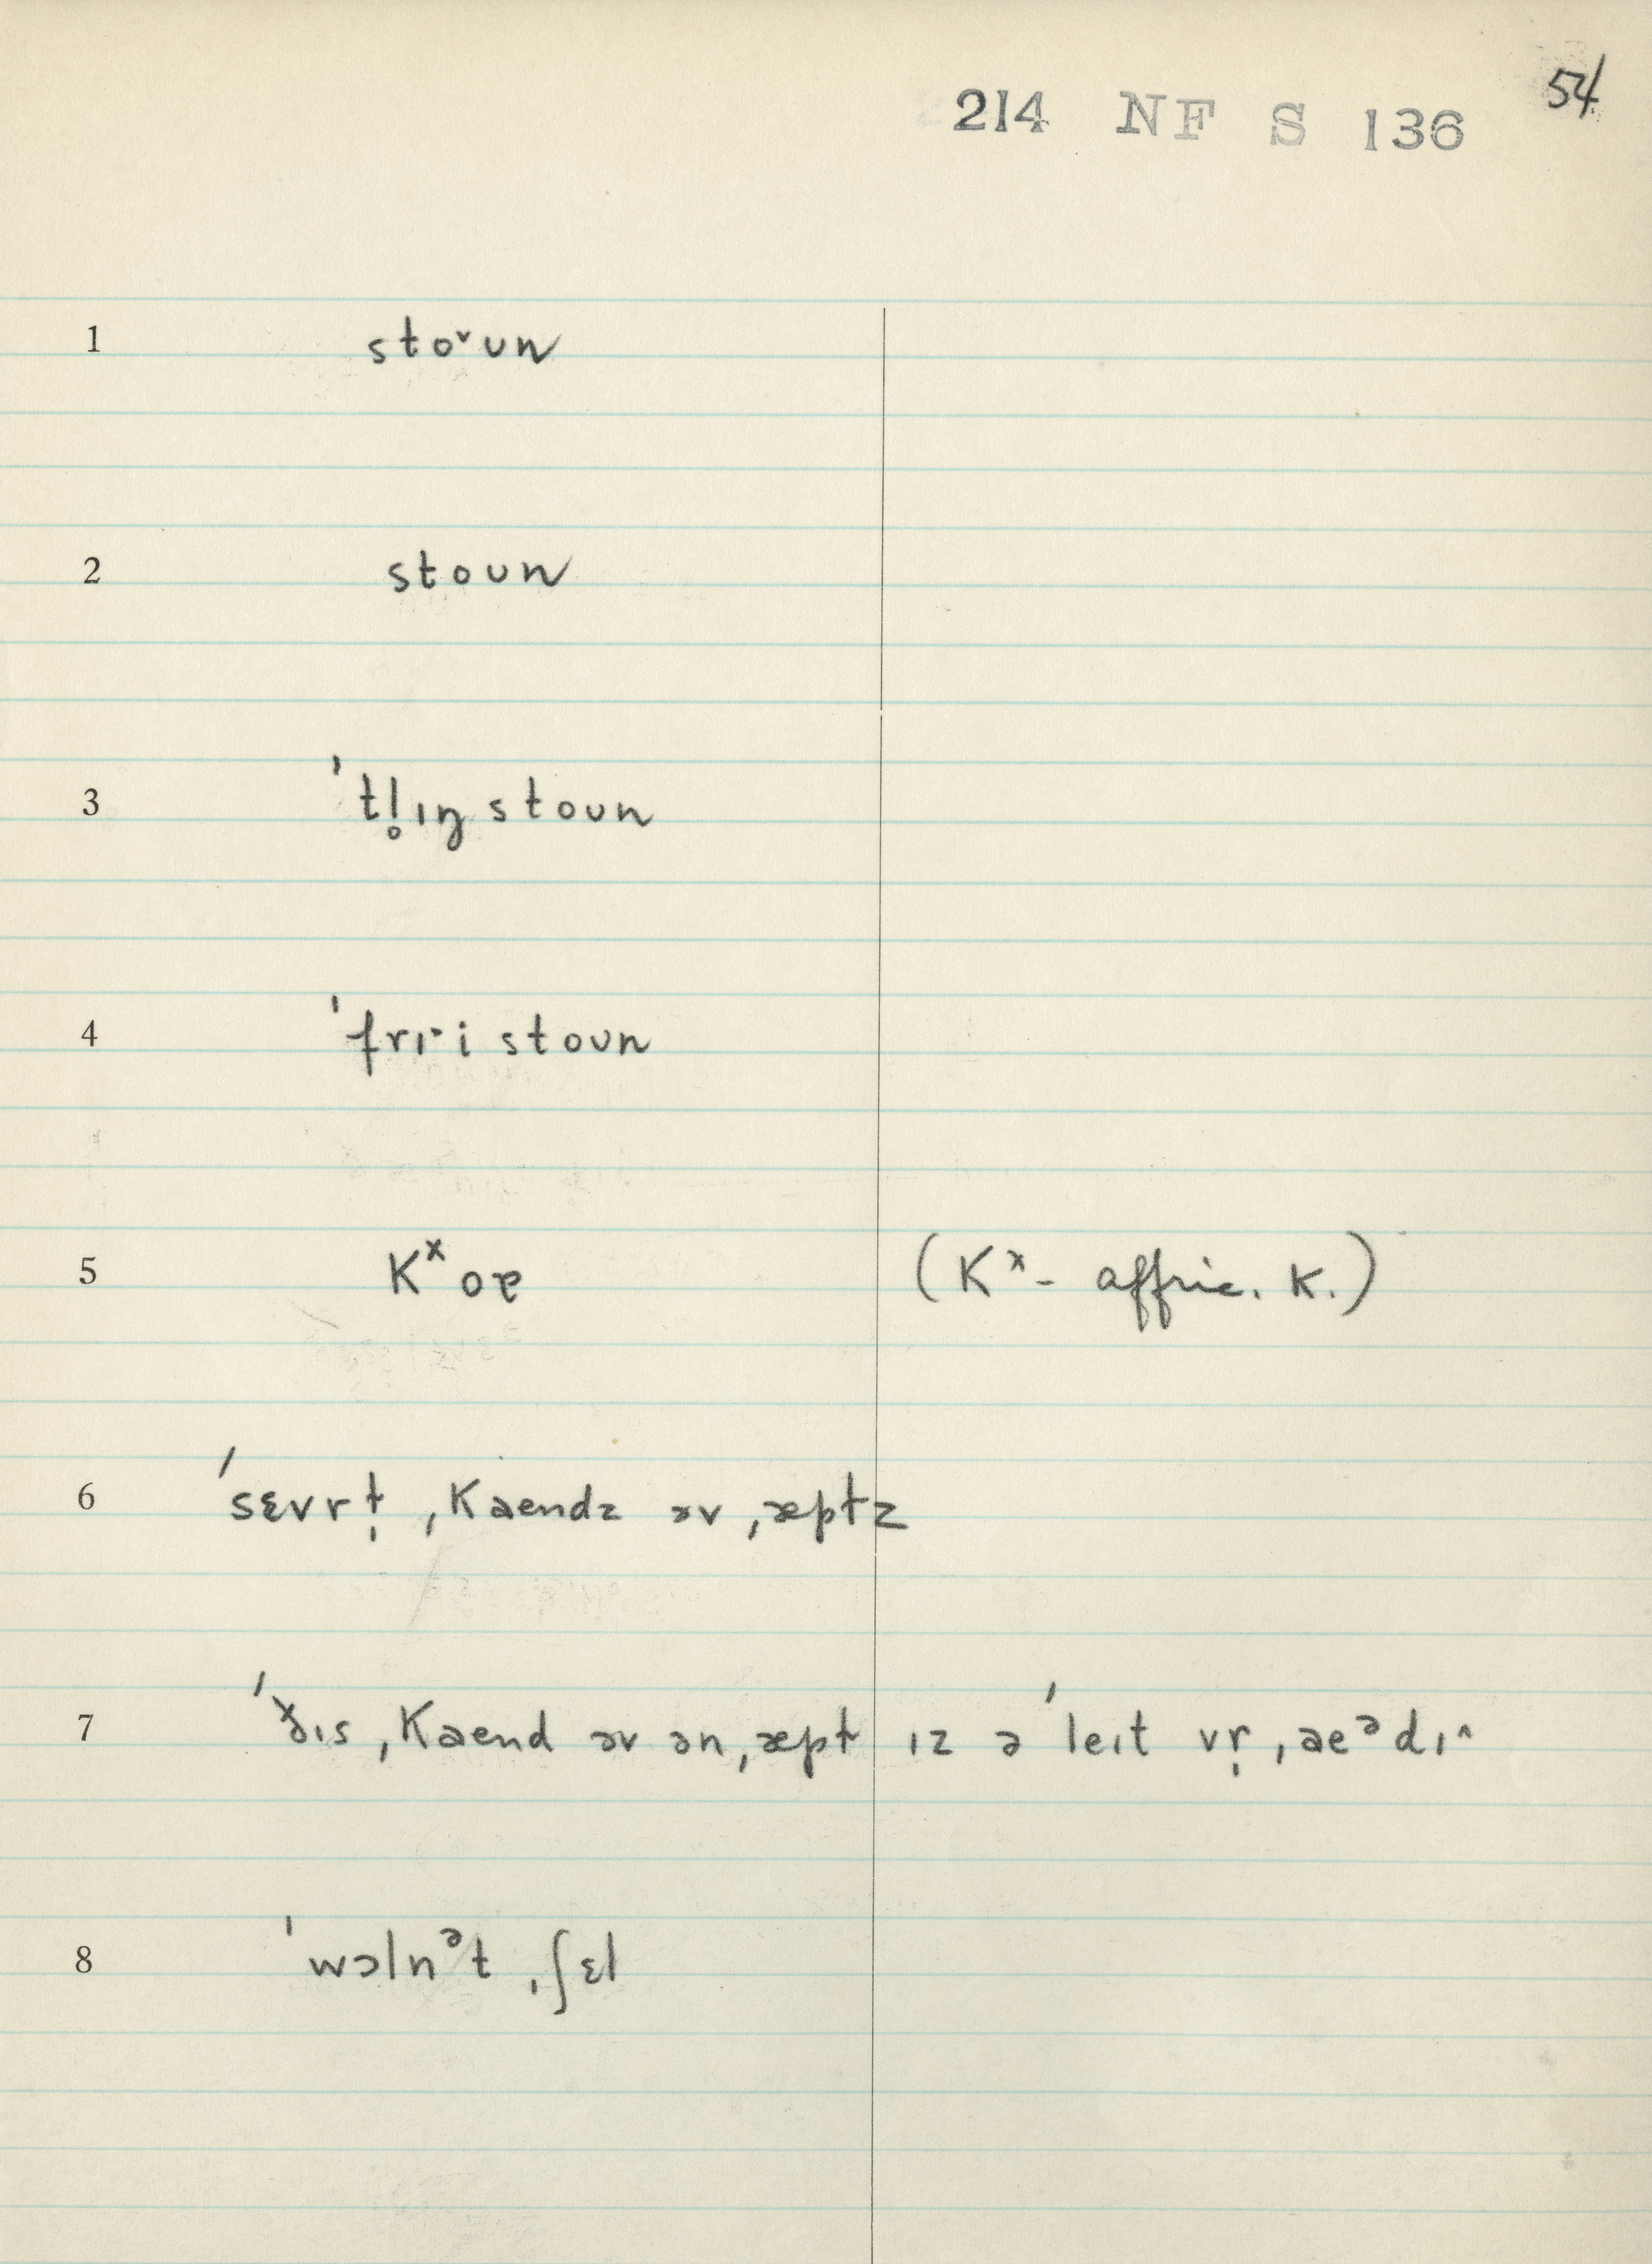 54
214 NF S 136
1 stoˇun
2 stoun
3 ˈtl̥ɪŋ stoun
4 ˈfrɪ·i stoun
5 Kˣoɐ (Kˣ- affric. K.)
6 ˈsɛvrł̩ ˌKaendz əv ˌæpłz
7 ˈðɪs ˌKaend əv ən ˌæpł ɪz ə ˈleɪt vr̩ ˌaeᵊdɪ^
8 ˈwɔlnᵊt ˌʃɛl